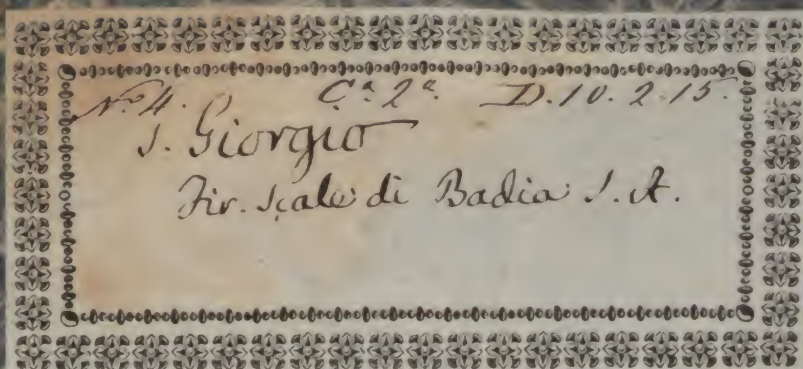 N.º 4. C.ª 2.ª D. 10. 2. 15.
S. Giorgio
Fir. Scale di Badia S. A.